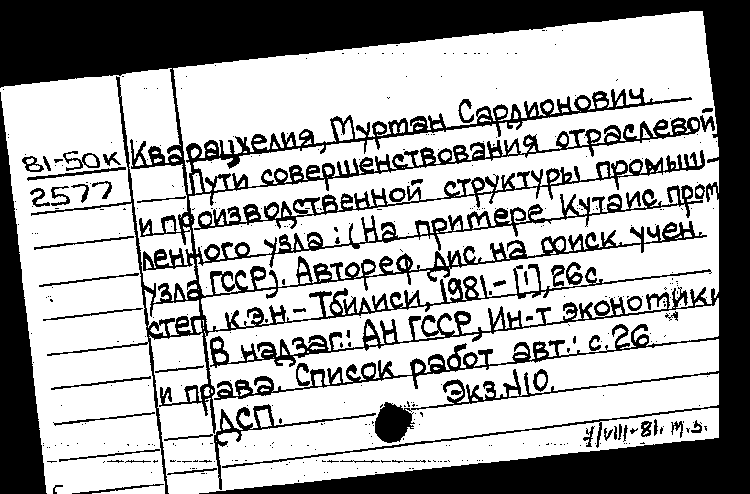 Кварацхелия, Муртан Сардионович.
81-50к
2577
Пути совершенствования отраслевой
и производственной структуры промыш-
ленного узла: (На примере Кутаис. пром
узла ГССР). Автореф. дис. на соиск. учен.
степ. к.э.н. - Тбилиси, 1981. - [1], 26с.
В надзаг.: АН ГССР, Ин-т экономики
и права. Список работ авт.: с. 26.
ДСП. Экз. N10.